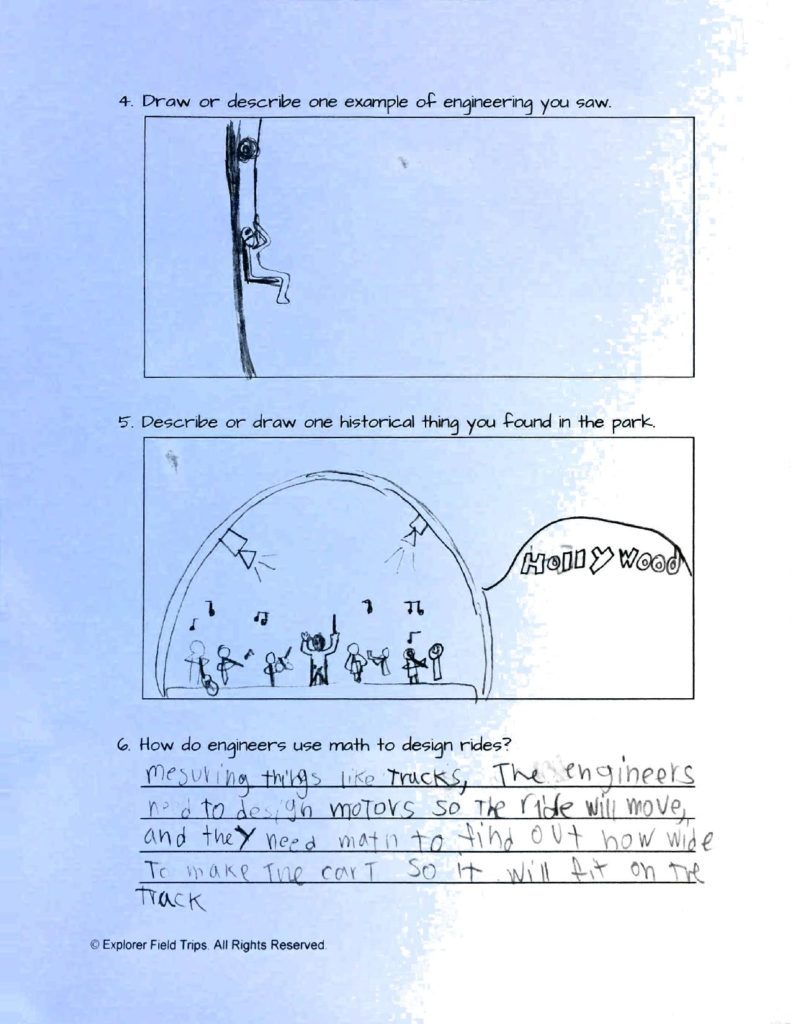 4. Draw or describe one example of engineering you saw.
5. Describe or draw one historical thing you found in the park.
Hollywood
6. How do engineers use math to design rides?
mesuring things like Tracks, The engineers
need to design motors so the ride will move,
and they need math to find out how wide
To make the cart so it will fit on the
Track
© Explorer Field Trips. All Rights Reserved.